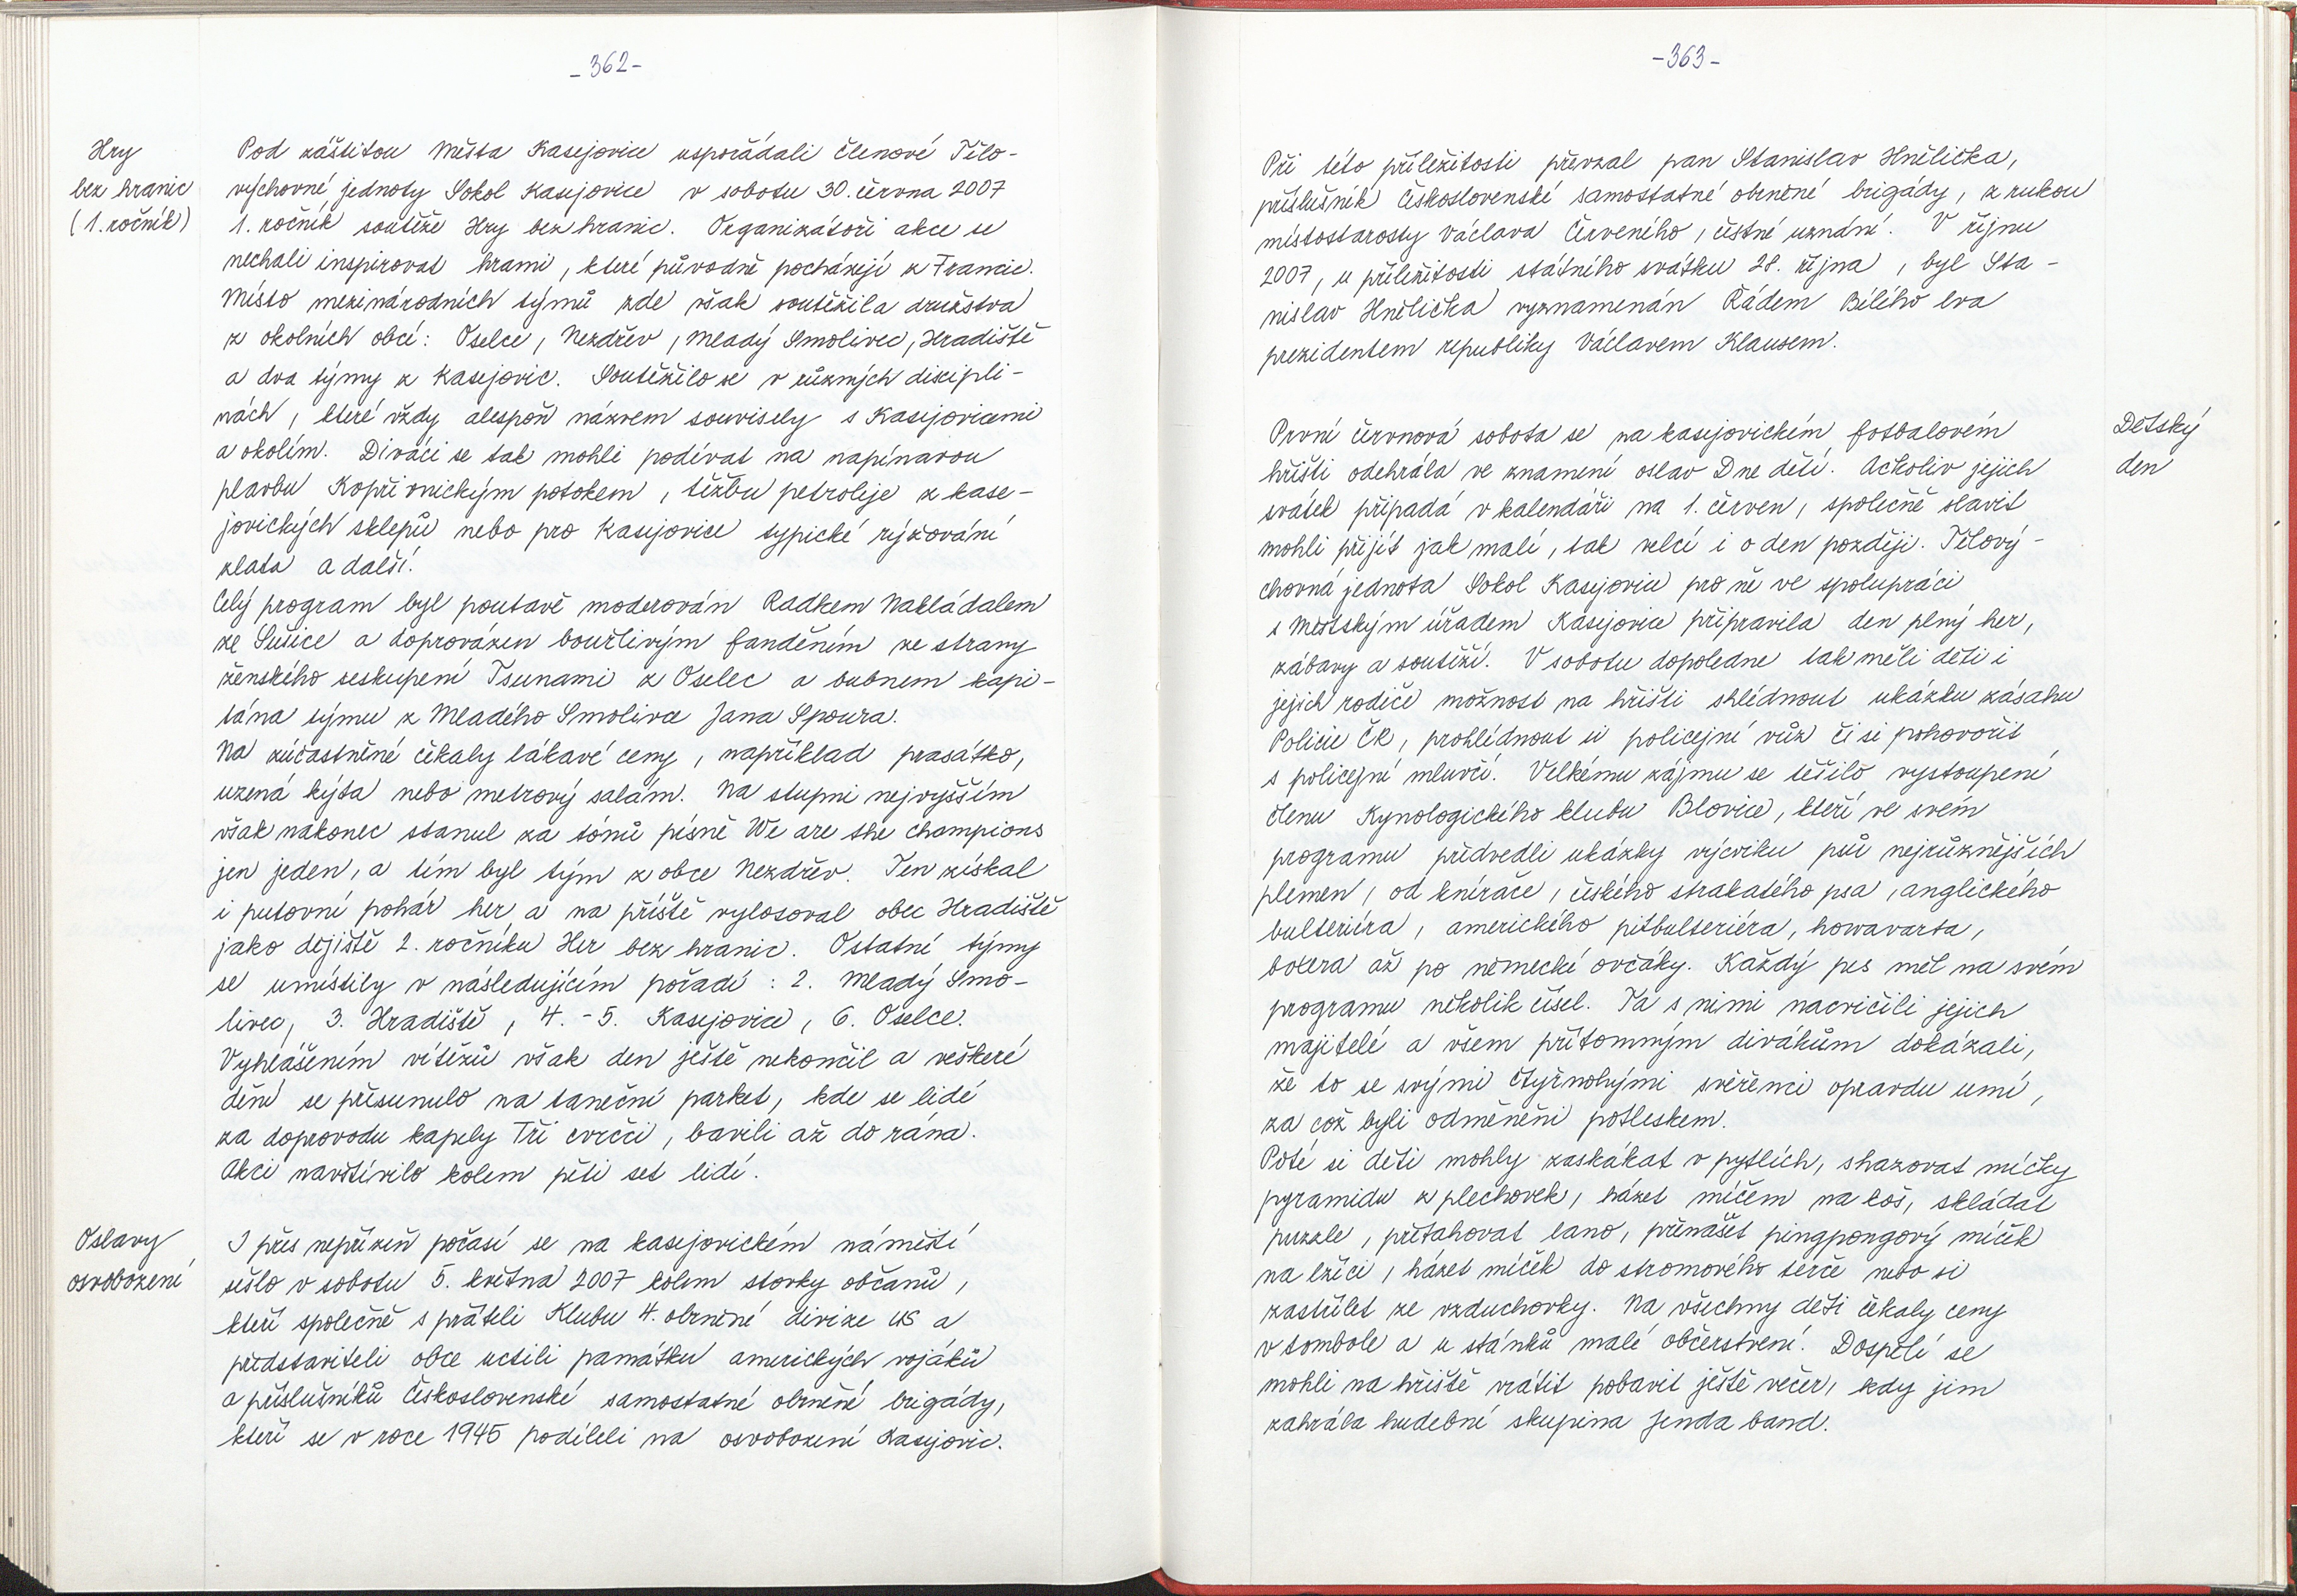 -362-
Hry
bez hranic
(1. ročník)
Pod záštitou Města Kasejovice uspořádali členové Tělo-
výchovné jednoty Sokol Kasejovice v sobotu 30. června 2007
1. ročník soutěže Hry bez hranic. Organizátoři akce se
nechali inspirovat hrami, které původně pocházejí z Francie.
Místo mezinárodních týmů zde však soutěžila družstva
z okolních obcí: Oselce, Nezdřev, Mladý Smolivec, Hradiště
a dva týmy z Kasejovic. Soutěžilo se v různých discipli-
nách, které vždy alespoň názvem souvisely s Kasejovicemi
a okolím. Diváci se tak mohli podívat na napínavou
plavbu Kopřivnickým potokem, těžbu petroleje z kase-
jovických sklepů nebo pro Kasejovice typické rýžování
zlata a další.
Celý program byl poutavě moderován Radkem Nakládalem
ze Sušice a doprovázen bouřlivým fanděním ze strany
ženského seskupení Tsunami z Oselec a bubnem kapi-
tána týmu z Mladého Smolivce Jana Spoura.
Na zúčastněné čekaly lákavé ceny, například prasátko,
uzená kýta nebo metrový salám. Na stupni nejvyšším
však nakonec stanul za tónů písně We are the champions
jen jeden, a tím byl tým z obce Nezdřev. Ten získal
i putovní pohár her a na příště vylosoval obec Hradiště
jako dějiště 2. ročníku Her bez hranic. Ostatní týmy
se umístily v následujícím pořadí: 2. Mladý Smo-
livec, 3. Hradiště, 4.-5. Kasejovice, 6. Oselce.
Vyhlášením vítězů však den ještě nekončil a veškeré
dění se přesunulo na taneční parket, kde se lidé
za doprovodu kapely Tři cvrčci, bavili až do rána.
Akci navštívilo kolem pěti set lidí.
Oslavy
osvobození
I přes nepřízeň počasí se na kasejovickém náměstí
sešlo v sobotu 5. května 2007 kolem stovky občanů,
kteří společně s přáteli Klubu 4. obrněné divize US a
představiteli obce uctili památku amerických vojáků
a příslušníků Československé samostatné obrněné brigády,
kteří se v roce 1945 podíleli na osvobození Kasejovic.
-363-
Při této příležitosti převzal pan Stanislav Hnělička,
příslušník Československé samostatné obrněné brigády, z rukou
místostarosty Václava Červeného, čestné uznání. V říjnu
2007, u příležitosti státního svátku 28. října, byl Sta-
nislav Hnělička vyznamenán Řádem Bílého lva
prezidentem republiky Václavem Klausem.
Dětský
den
První červnová sobota se na kasejovickém fotbalovém
hřišti odehrála ve znamení oslav Dne dětí. Ačkoliv jejich
svátek připadá v kalendáři na 1. červen, společně slavit
mohli přijít jak malí, tak velcí i o den později. Tělový-
chovná jednota Sokol Kasejovice pro ně ve spolupráci
s Městským úřadem Kasejovice připravila den plný her,
zábavy a soutěží. V sobotu dopoledne tak měli děti i
jejich rodiče možnost na hřišti shlédnout ukázku zásahu
Policie ČR, prohlédnout si policejní vůz či si pohovořit
s policejní mluvčí. Velkému zájmu se těšilo vystoupení
členu Kynologického klubu Blovice, kteří ve svém
programu předvedli ukázky výcviku psů nejrůznějších
plemen, od knírače, českého strakatého psa, anglického
bulteriéra, amerického pitbulteriéra, howavarta,
boxera až po německé ovčáky. Každý pes měl na svém
programu několik čísel. Ta s nimi nacvičili jejich
majitelé a všem přítomným divákům dokázali,
že to se svými čtyřnohými svěřenci opravdu umí,
za což byli odměněni potleskem.
Poté si děti mohly zaskákat v pytlích, shazovat míčky
pyramidu z plechovek, házet míčem na koš, skládat
puzzle, přetahovat lano, přenášet pingpongový míček
na lžíci, házet míček do stromového terče nebo si
zastřílet ze vzduchovky. Na všechny děti čekaly ceny
v tombole a u stánků malé občerstvení. Dospělí se
mohli na hřiště vrátit pobavit ještě večer, kdy jim
zahrála hudební skupina Jenda band.